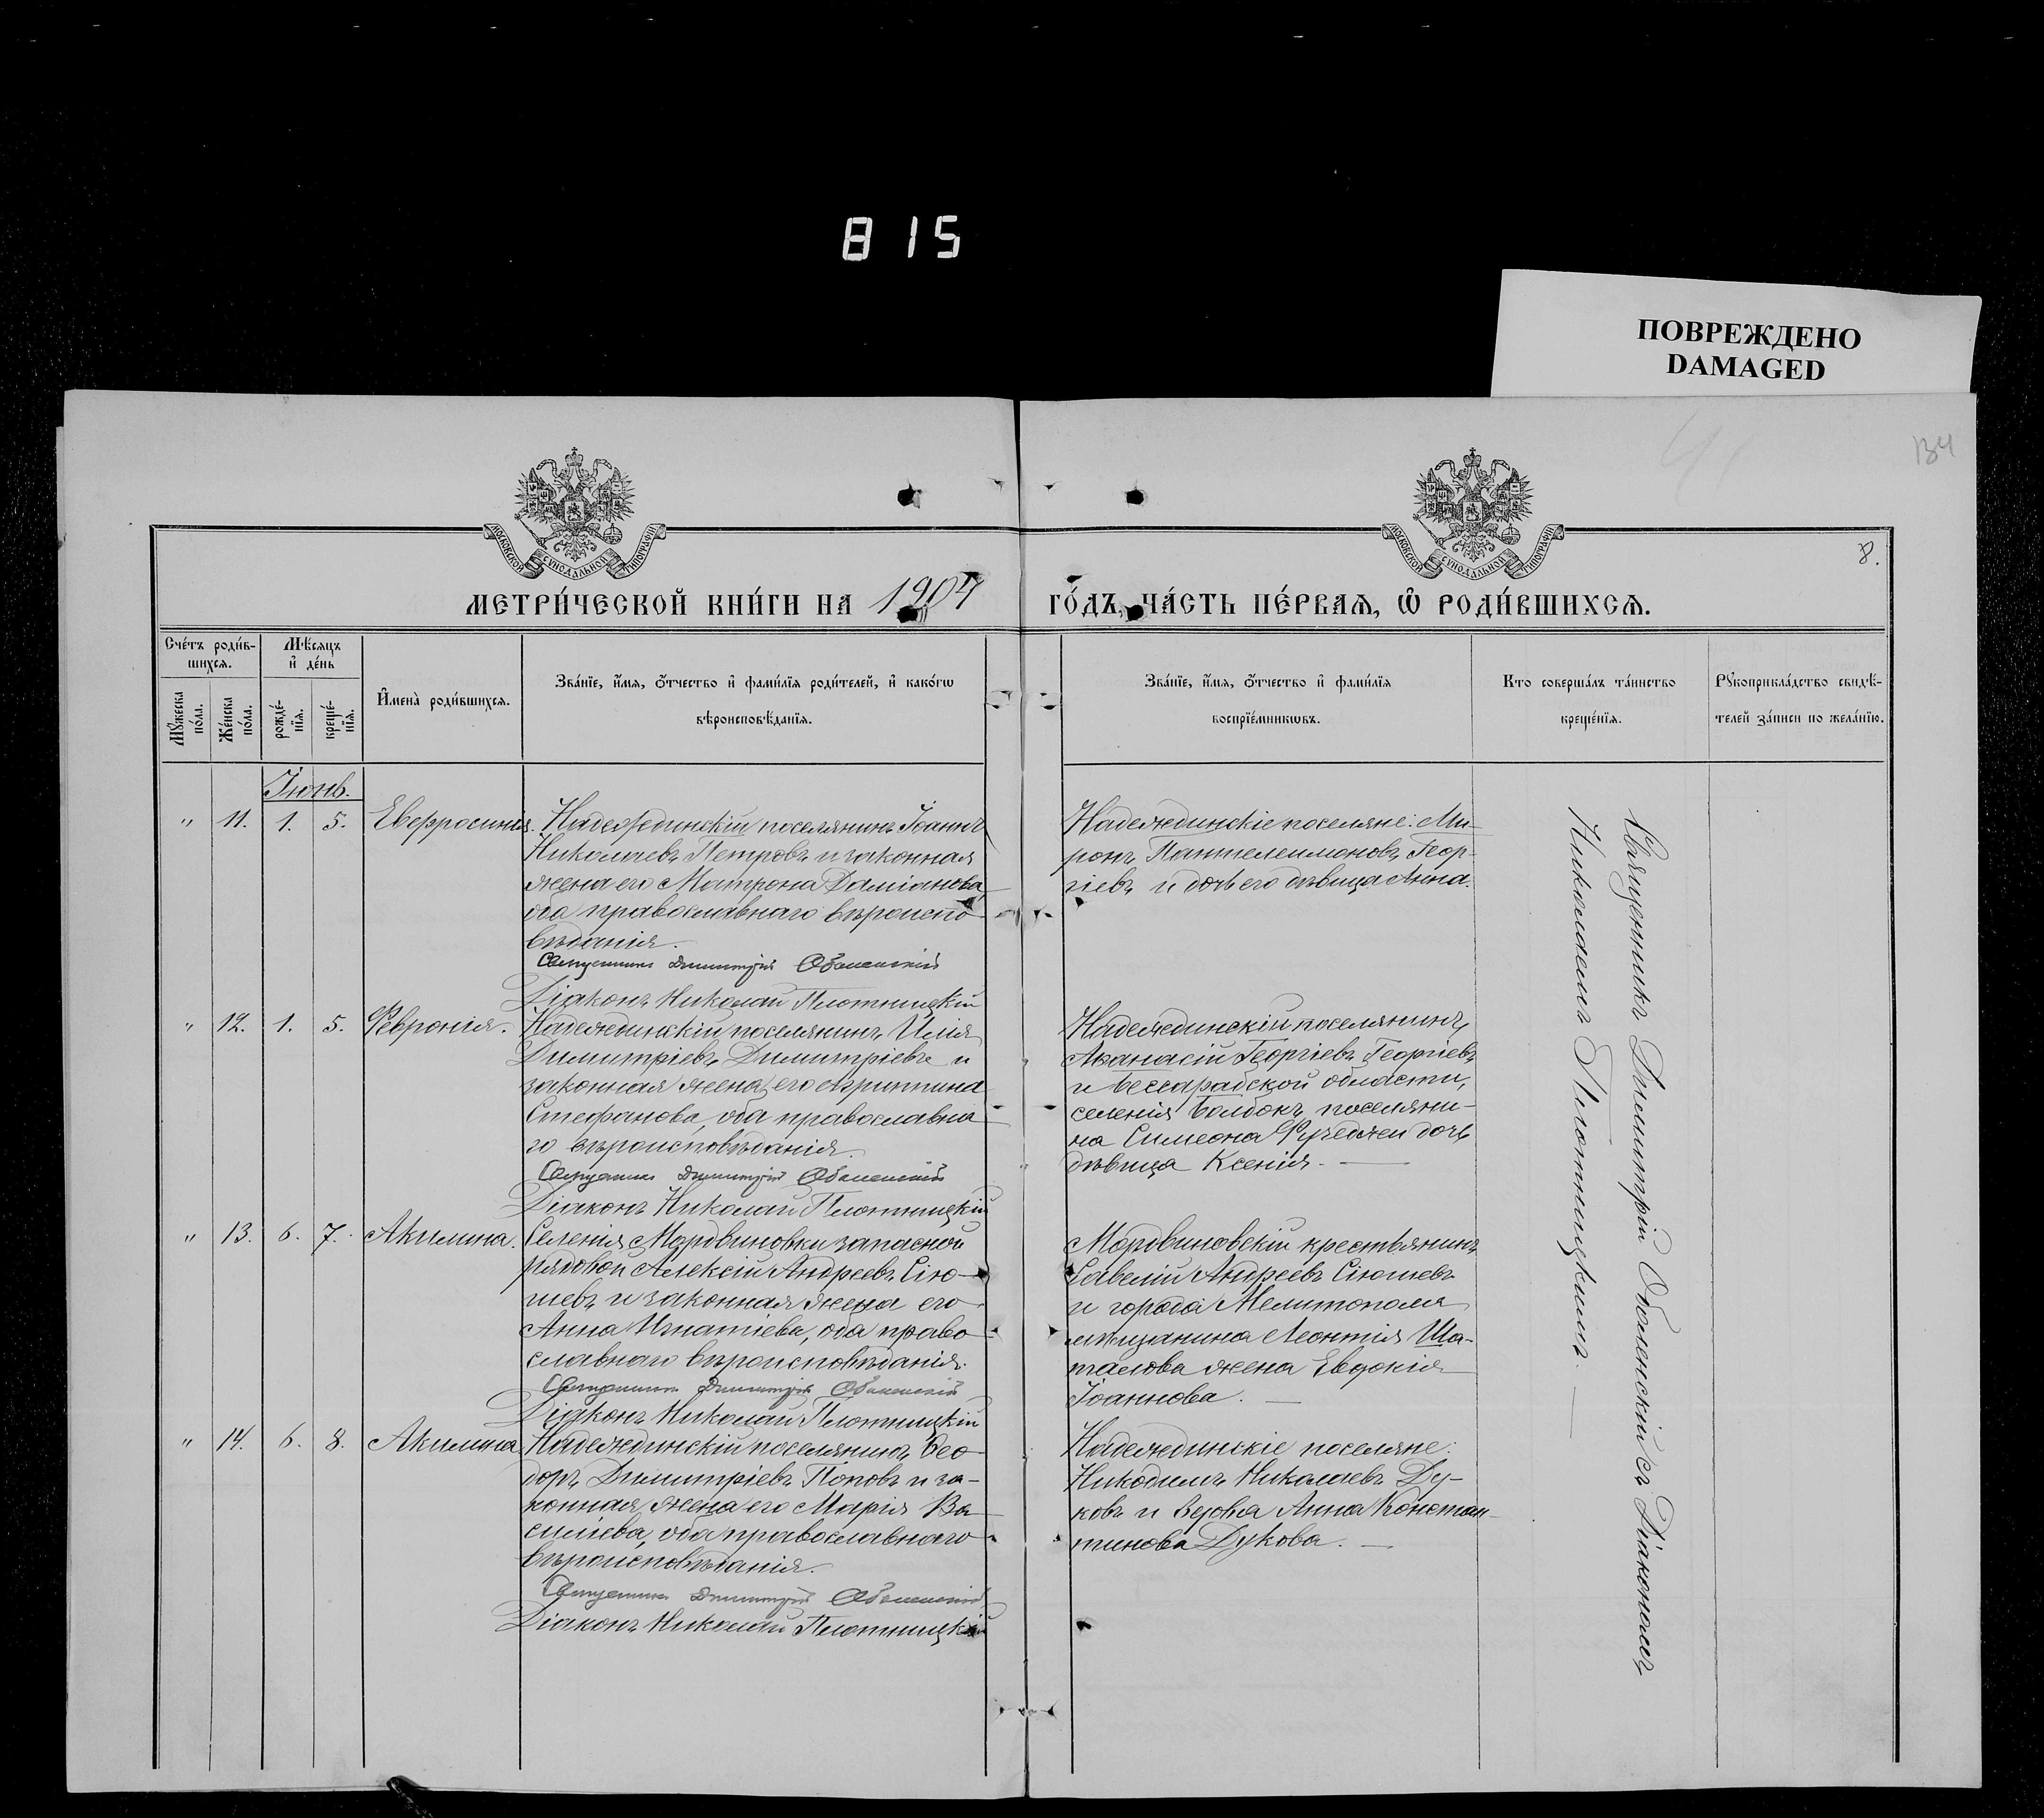 815
ПОВРЕЖДЕНО
DAMAGED
134
8.
МОСКОВСКОЙ СѴНОДАЛЬНОЙ ТИПОГРАФІИ
МОСКОВСКОЙ СѴНОДАЛЬНОЙ ТИПОГРАФІИ
МЕТРИ́ЧЕСКОЙ КНИ́ГИ НА 1904 ГО́ДЪ, ЧА́СТЬ ПЕ́РВАѦ, Ѡ РОДИ́ВШИХСѦ.
Сче́тъ роди́в-
шихсѧ.
Мꙋжеска по́ла.
Же́нска по́ла.
Мѣ́сяцъ
и де́нь
рожде́-
нїѧ.
креще́-
нїѧ.
Имена̀ роди́вшихсѧ.
Зва́нїе, и́мѧ, о́тчество и фами́лїѧ роди́телей, и како́гѡ
вѣроисповѣ́данїѧ.
Зва́нїе, и́мѧ, о́тчество и фами́лїѧ
воспрїе́мникѡвъ.
Кто соверша́лъ та́инство
креще́нїѧ.
Рꙋкоприкла́дство свидѣ́-
телей за́писи по жела́нїю.
Іюнь.
" 11. 1. 5. Евфросинія.
Надеждинскій поселянинъ Іоаннъ
Николаевъ Петровъ и законная
жена его Матрона Даміанова,
оба православнаго вѣроиспо-
вѣданія.
Священникъ Димитрій Оболенскій
Діаконъ Николай Плотницкій
Надеждинскіе поселяне: Ми-
ронъ Пантелеимоновъ Геор-
гіевъ и дочь его дѣвица Анна.
" 12. 1. 5. Февронія.
Надеждинскій поселянинъ Илія
Димитріевъ Димитріевъ и
законная жена его Агриппина
Стефанова, оба православна-
го вѣроисповѣданія.
Священникъ Димитрій Оболенскій
Діаконъ Николай Плотницкій
Надеждинскій поселянинъ
Аѳанасій Георгіевъ Георгіевъ
и Бессарабской области,
селенія Болбокъ поселяни-
на Симеона дочь
дѣвица Ксенія.
" 13. 6. 7. Акилина.
Селенія Мордвиновки запасной
рядовой Алексій Андреевъ Сію-
шевъ и законная жена его
Анна Игнатіева, оба право-
славнаго вѣроисповѣданія.
Священникъ Димитрій Оболенскій
Діаконъ Николай Плотницкій
Мордвиновскій крестьянинъ
Савелій Андреевъ Сіюшевъ
и города Мелитополя
мѣщанина Леонтія Ша-
талова жена Евдокія
Іоаннова.
" 14. 6. 8. Акилина
Надеждинскій поселянинъ Ѳео-
доръ Димитріевъ Поповъ и за-
конная жена его Марія Ва-
силіева, оба православнаго
вѣроисповѣданія.
Священникъ Димитрій Оболенскій
Діаконъ Николай Плотницкій
Надеждинскіе поселяне:
Никодимъ Николаевъ Ду-
ковъ и вдова Анна Констан-
тинова Дукова.
Священникъ Димитрій Оболенскій съ Діакономъ
Николаемъ Плотницкимъ.